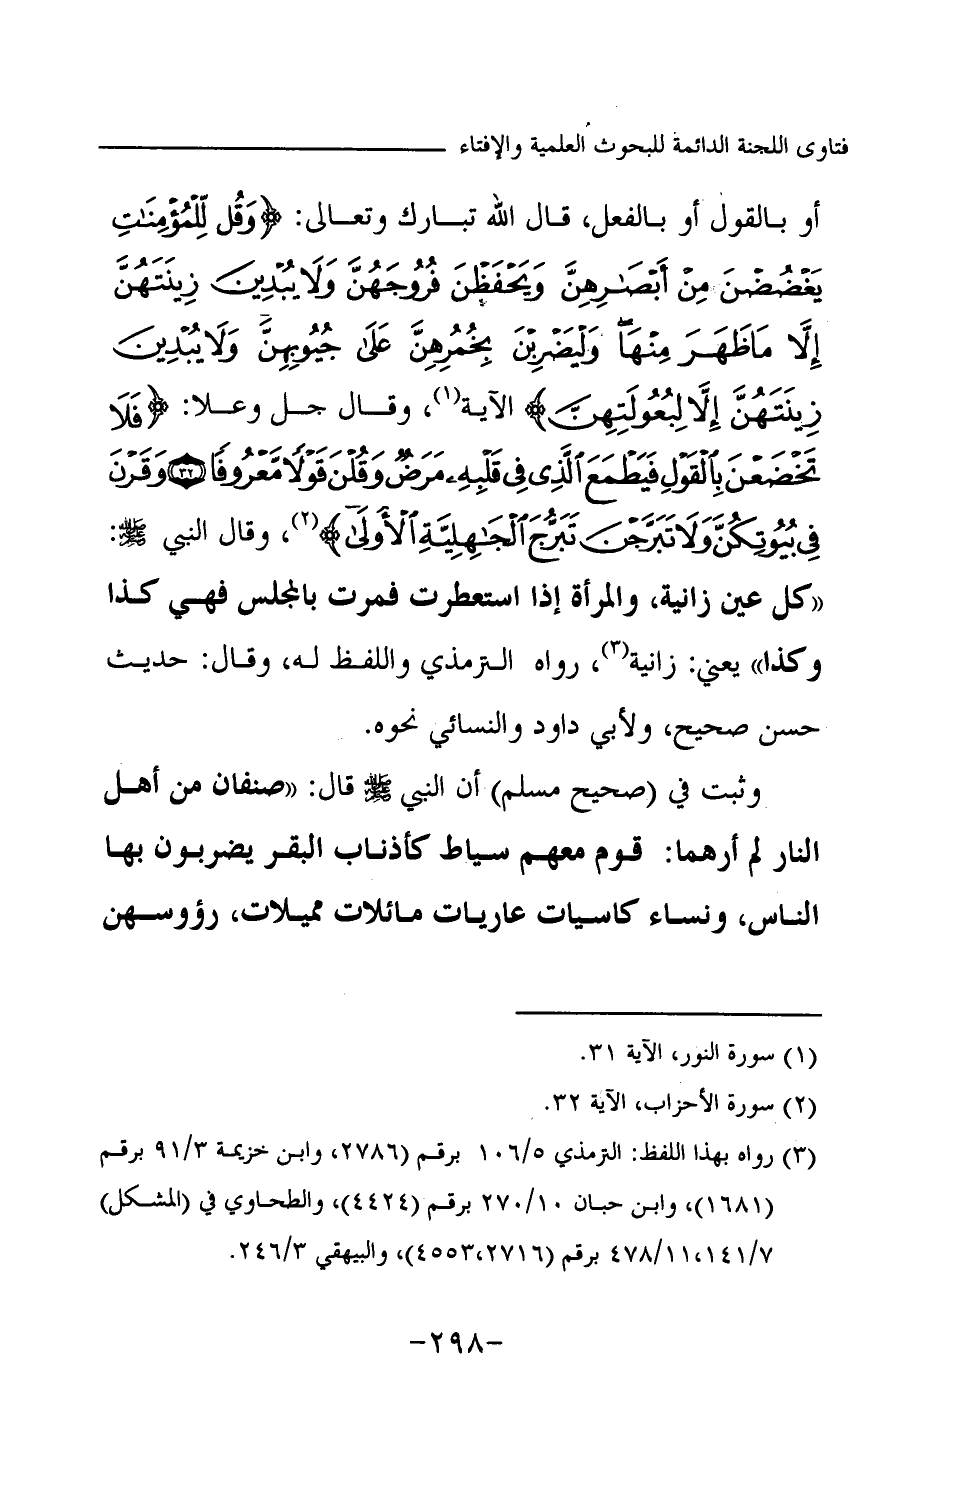 فتاوى اللجنة الدائمة للبحوث العلمية والإفتاء
أو بالقول أو بالفعل، قال الله تبارك وتعالى: ﴿وَقُل لِّلْمُؤْمِنَٰتِ
يَغْضُضْنَ مِنْ أَبْصَٰرِهِنَّ وَيَحْفَظْنَ فُرُوجَهُنَّ وَلَا يُبْدِينَ زِينَتَهُنَّ
إِلَّا مَا ظَهَرَ مِنْهَا ۖ وَلْيَضْرِبْنَ بِخُمُرِهِنَّ عَلَىٰ جُيُوبِهِنَّ ۖ وَلَا يُبْدِينَ
زِينَتَهُنَّ إِلَّا لِبُعُولَتِهِنَّ﴾ الآية(١)، وقال جل وعلا: ﴿فَلَا
تَخْضَعْنَ بِٱلْقَوْلِ فَيَطْمَعَ ٱلَّذِى فِى قَلْبِهِۦ مَرَضٌ وَقُلْنَ قَوْلًا مَّعْرُوفًا ٣٢ وَقَرْنَ
فِى بُيُوتِكُنَّ وَلَا تَبَرَّجْنَ تَبَرُّجَ ٱلْجَٰهِلِيَّةِ ٱلْأُولَىٰ﴾(٢)، وقال النبي ﷺ:
«كل عين زانية، والمرأة إذا استعطرت فمرت بالمجلس فهي كذا
وكذا» يعني: زانية(٣)، رواه الترمذي واللفظ له، وقال: حديث
حسن صحيح، ولأبي داود والنسائي نحوه.
وثبت في (صحيح مسلم) أن النبي ﷺ قال: «صنفان من أهل
النار لم أرهما: قوم معهم سياط كأذناب البقر يضربون بها
الناس، ونساء كاسيات عاريات مائلات مميلات، رؤوسهن
(١) سورة النور، الآية ٣١.
(٢) سورة الأحزاب، الآية ٣٢.
(٣) رواه بهذا اللفظ: الترمذي ١٠٦/٥ برقم (٢٧٨٦)، وابن خزيمة ٩١/٣ برقم
(١٦٨١)، وابن حبان ٢٧٠/١٠ برقم (٤٤٢٤)، والطحاوي في (المشكل)
١٤١/٧، ٤٧٨/١١ برقم (٢٧١٦، ٤٥٥٣)، والبيهقي ٢٤٦/٣.
-٢٩٨-